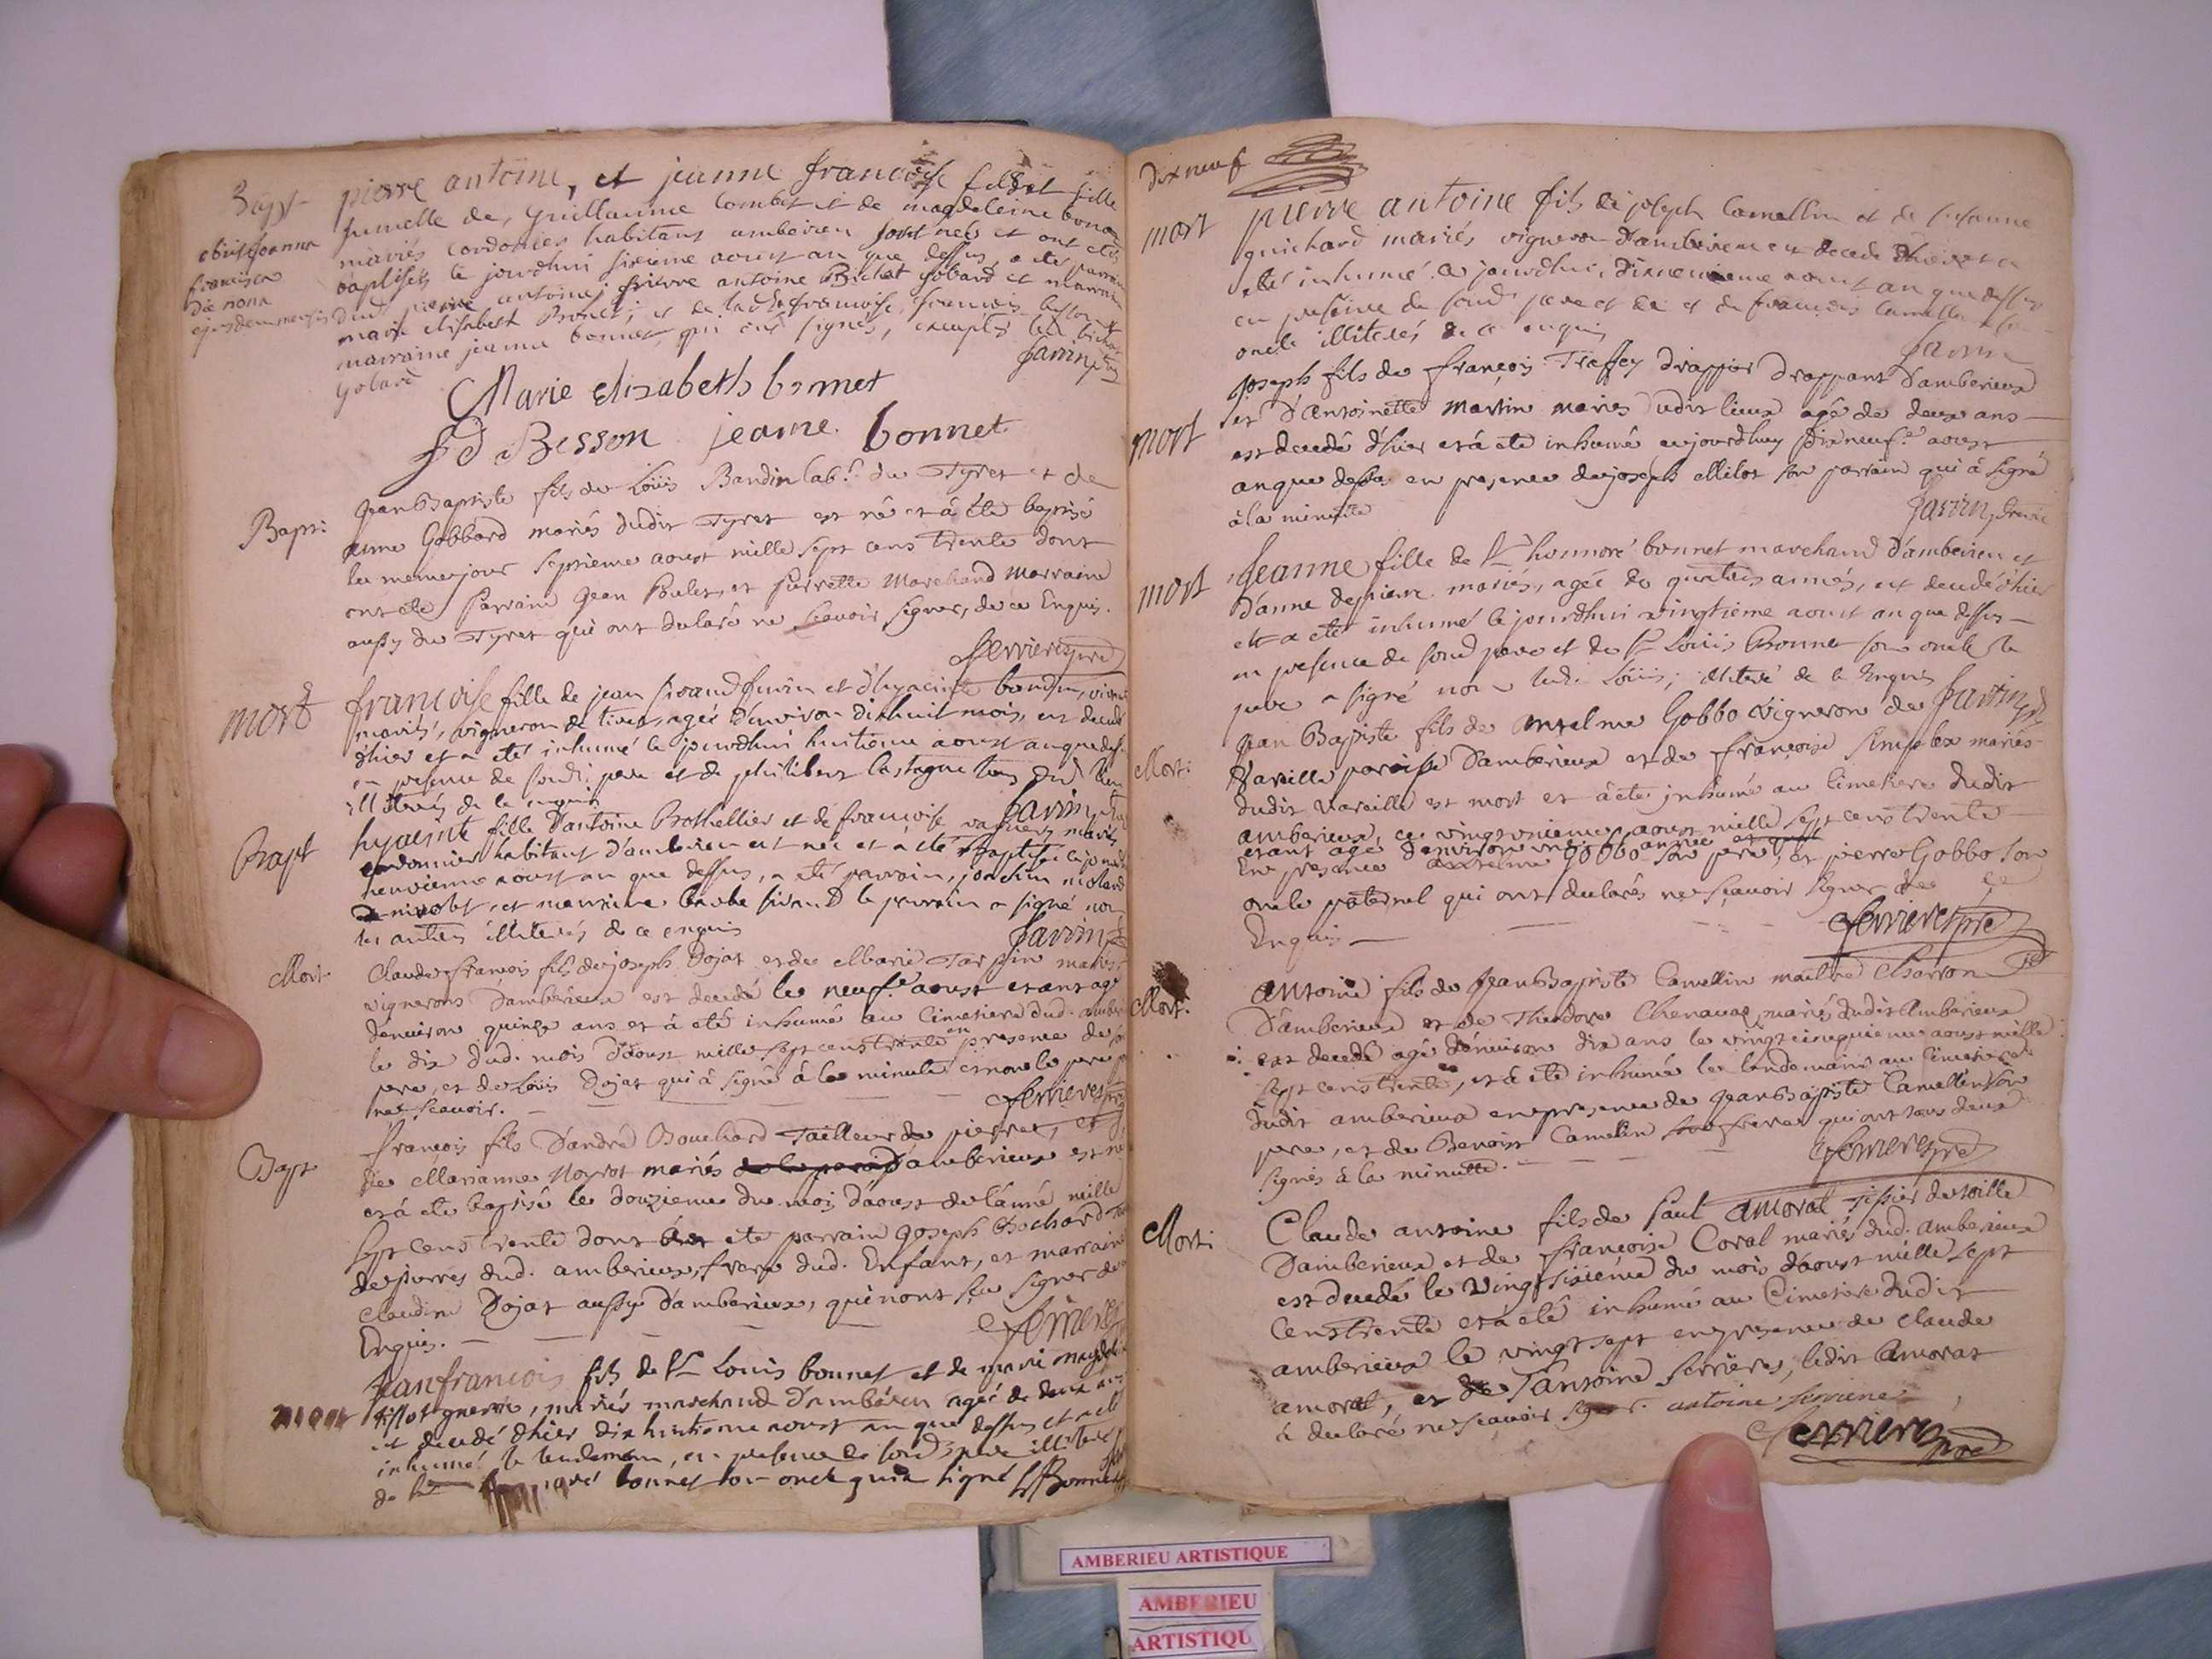 Bapt
obiit Joanna
francisca
die nona
ejusdem mensis
pierre antoine, et jeanne francoise fils et fille
jumelle de, Guillaume Combet et de magdeleine bonar
mariés cordonier habitans amberieu sont nes et ont etés
baptisés le jourdhui sixieme aoust an que dessus, a eté parrain
dud pierre antoine, pierre antoine Bichat Gobard et marraine
marie elisabeth Bonet; et de lad francoise, francois besson et
marraine jeanne bonnet, qui ont signés, exceptés led bichat
Gobard
Jarrin
Marie elisabeth bonnet
fd Besson jeanne bonnet
Bapt:
Jean Baptiste fils de Loüis Bandin lab.r du Tyret et de
anne Gobbard mariés dudit Tyret est né et à été baptisé
le meme jour septieme aoust mille sept cens trente dont
ont ete Parrain Jean Poulet, et Pierrette Marchand Marraine
aussy du Tyret qui ont declaré ne scavoir signer, de ce Enquis.
ferrieres pre
mort
francoise fille de jean sivand juvin et d'hyacinte bandin, vivans
mariés, vigneron de tiret, agée d'environ dixhuit mois, est decedé
dhier et a eté inhumé le jourdhui huitieme aoust an que dess.
en presence de sond. pere et de philibert lastague tous dud lieu
illiterés de ce enquis
Jarrin
Bapt
hyacinte fille d'antoine Bothellier et de francoise vagner mariés
cordonnier habitant d'amberieu est née et a eté baptisée cejourd
neuvieme aoust an que dessus, a eté parrain, joachin molard
et marraine barbe sivand le parrain a signé non
les autres illiterés de ce enquis
Jarrin
Mort
Claude francois fils de joseph Dojat et de Marie Tarpin mariés
vignerons d'amberieux est decedé le neuf.e aoust etant agé
denviron quinze ans et à eté inhumé au Cimetiere dud. amber
le dix dud. mois d'aoust mille sept cens trente en presence de son
pere, et de Loüis Dojat qui à signé à la minute et non le pere p
ne scavoir.
ferrieres pre
Bapt
francois fils d'andré Bouchard Tailleur de pierres, et
de Marianne Noyrot mariés d'amberieux est né
et à eté baptisé le douzieme du mois d'aoust de l'anné mille
sept cens trente dont ete parrain Joseph Bochard
de pierres dud. amberieux, frere dud. Enfant, et marraine
claudine Dojat aussy d'amberieux, qui nont sçu signer de
Enquis.
ferrieres
mort
Jean francois fils de Sr Louis bonnet et de marie magdel
tissot guerre, mariés marchand d'amberieu agé de deux ans
est decedé dhier dix huitieme aoust an que dessus et a eté
inhumé le lendemain, en presence de sond. pere illiteré
de bonnet son oncle qui a signé LBonnet
dix neuf
mort
pierre antoine fils de joseph Camellin et de susanne
guichard mariés vigneron d'amberieu est decedé dhier et a
eté inhumé ce jourdhui, dixneuvieme aoust an que dessus
en presence de sond. pere et de et de francois camellin son
oncle illiterés de ce enquis
Jarrin
mort
Joseph fils de françois Treffey drappier drappant d'amberieux
et d'antoinette Martin mariés dudit lieux agé de deux ans
est decedé d'hier et à eté inhumé aujourdhuy dixneuf.e aoust
an que dessus en presence de joseph Milot son parrain qui à signé
à la minutte
Jarrin
mort
Jeanne fille de Sr honnoré bonnet marchand d'amberieu et
d'anne despierre mariés, agée de quatres années, est decedé d'hier
et a eté inhumé le jourdhui vingtieme aoust an que dessus
en presence de sond pere et de Sr Loüis Bonnet son oncle le
pere a signé non ledi. Loüis, illiteré de ce Enquis
Jarrin
Mort:
Jean Baptiste fils de Antelme Gobbo Vigneron de
Vareille paroisse d'amberieux et de françoise mariés
dudit vareille est mort et à eté inhumé au Cimetiere dudit
amberieux, ce vingt unieme aoust mille sept cens trente
etant agé denviron
En presence antelme Gobbo son pere, et pierre Gobbo son
oncle paternel qui ont declarés ne sçavoir signer de ce
Enquis
ferrieres pre
Mort:
Antoine fils de Jean Baptiste Camellin maitre Charron
d'amberieux et de Theodore Chenavas mariés dudit Amberieux
est decedé agé denviron dix ans le vingt cinquieme aoust mille
sept cens trente, et à eté inhumé le lendemain au Cimetiere
dudit amberieux en presence de Jean Baptiste Camellin son
pere, et de Benoist Camelin son frere qui ont tous deux
signés à la minutte.
ferrieres pre
Mort:
Claude antoine fils de Paul amorat tissier de toille
D'amberieux et de françoise Coral mariés dud. amberieux
est decedé le Vingt sixiéme du mois d'aoust mille sept
cens trente et à eté inhumé au Cimetiere dudit
amberieux le vingt sept en presence de claude
amorat, et de Tantoine ferrieres, ledit Amorat
à declaré ne scavoir signer. antoine ferriere
ferrieres pre
AMBERIEU ARTISTIQUE
AMBERIEU
ARTISTIQU